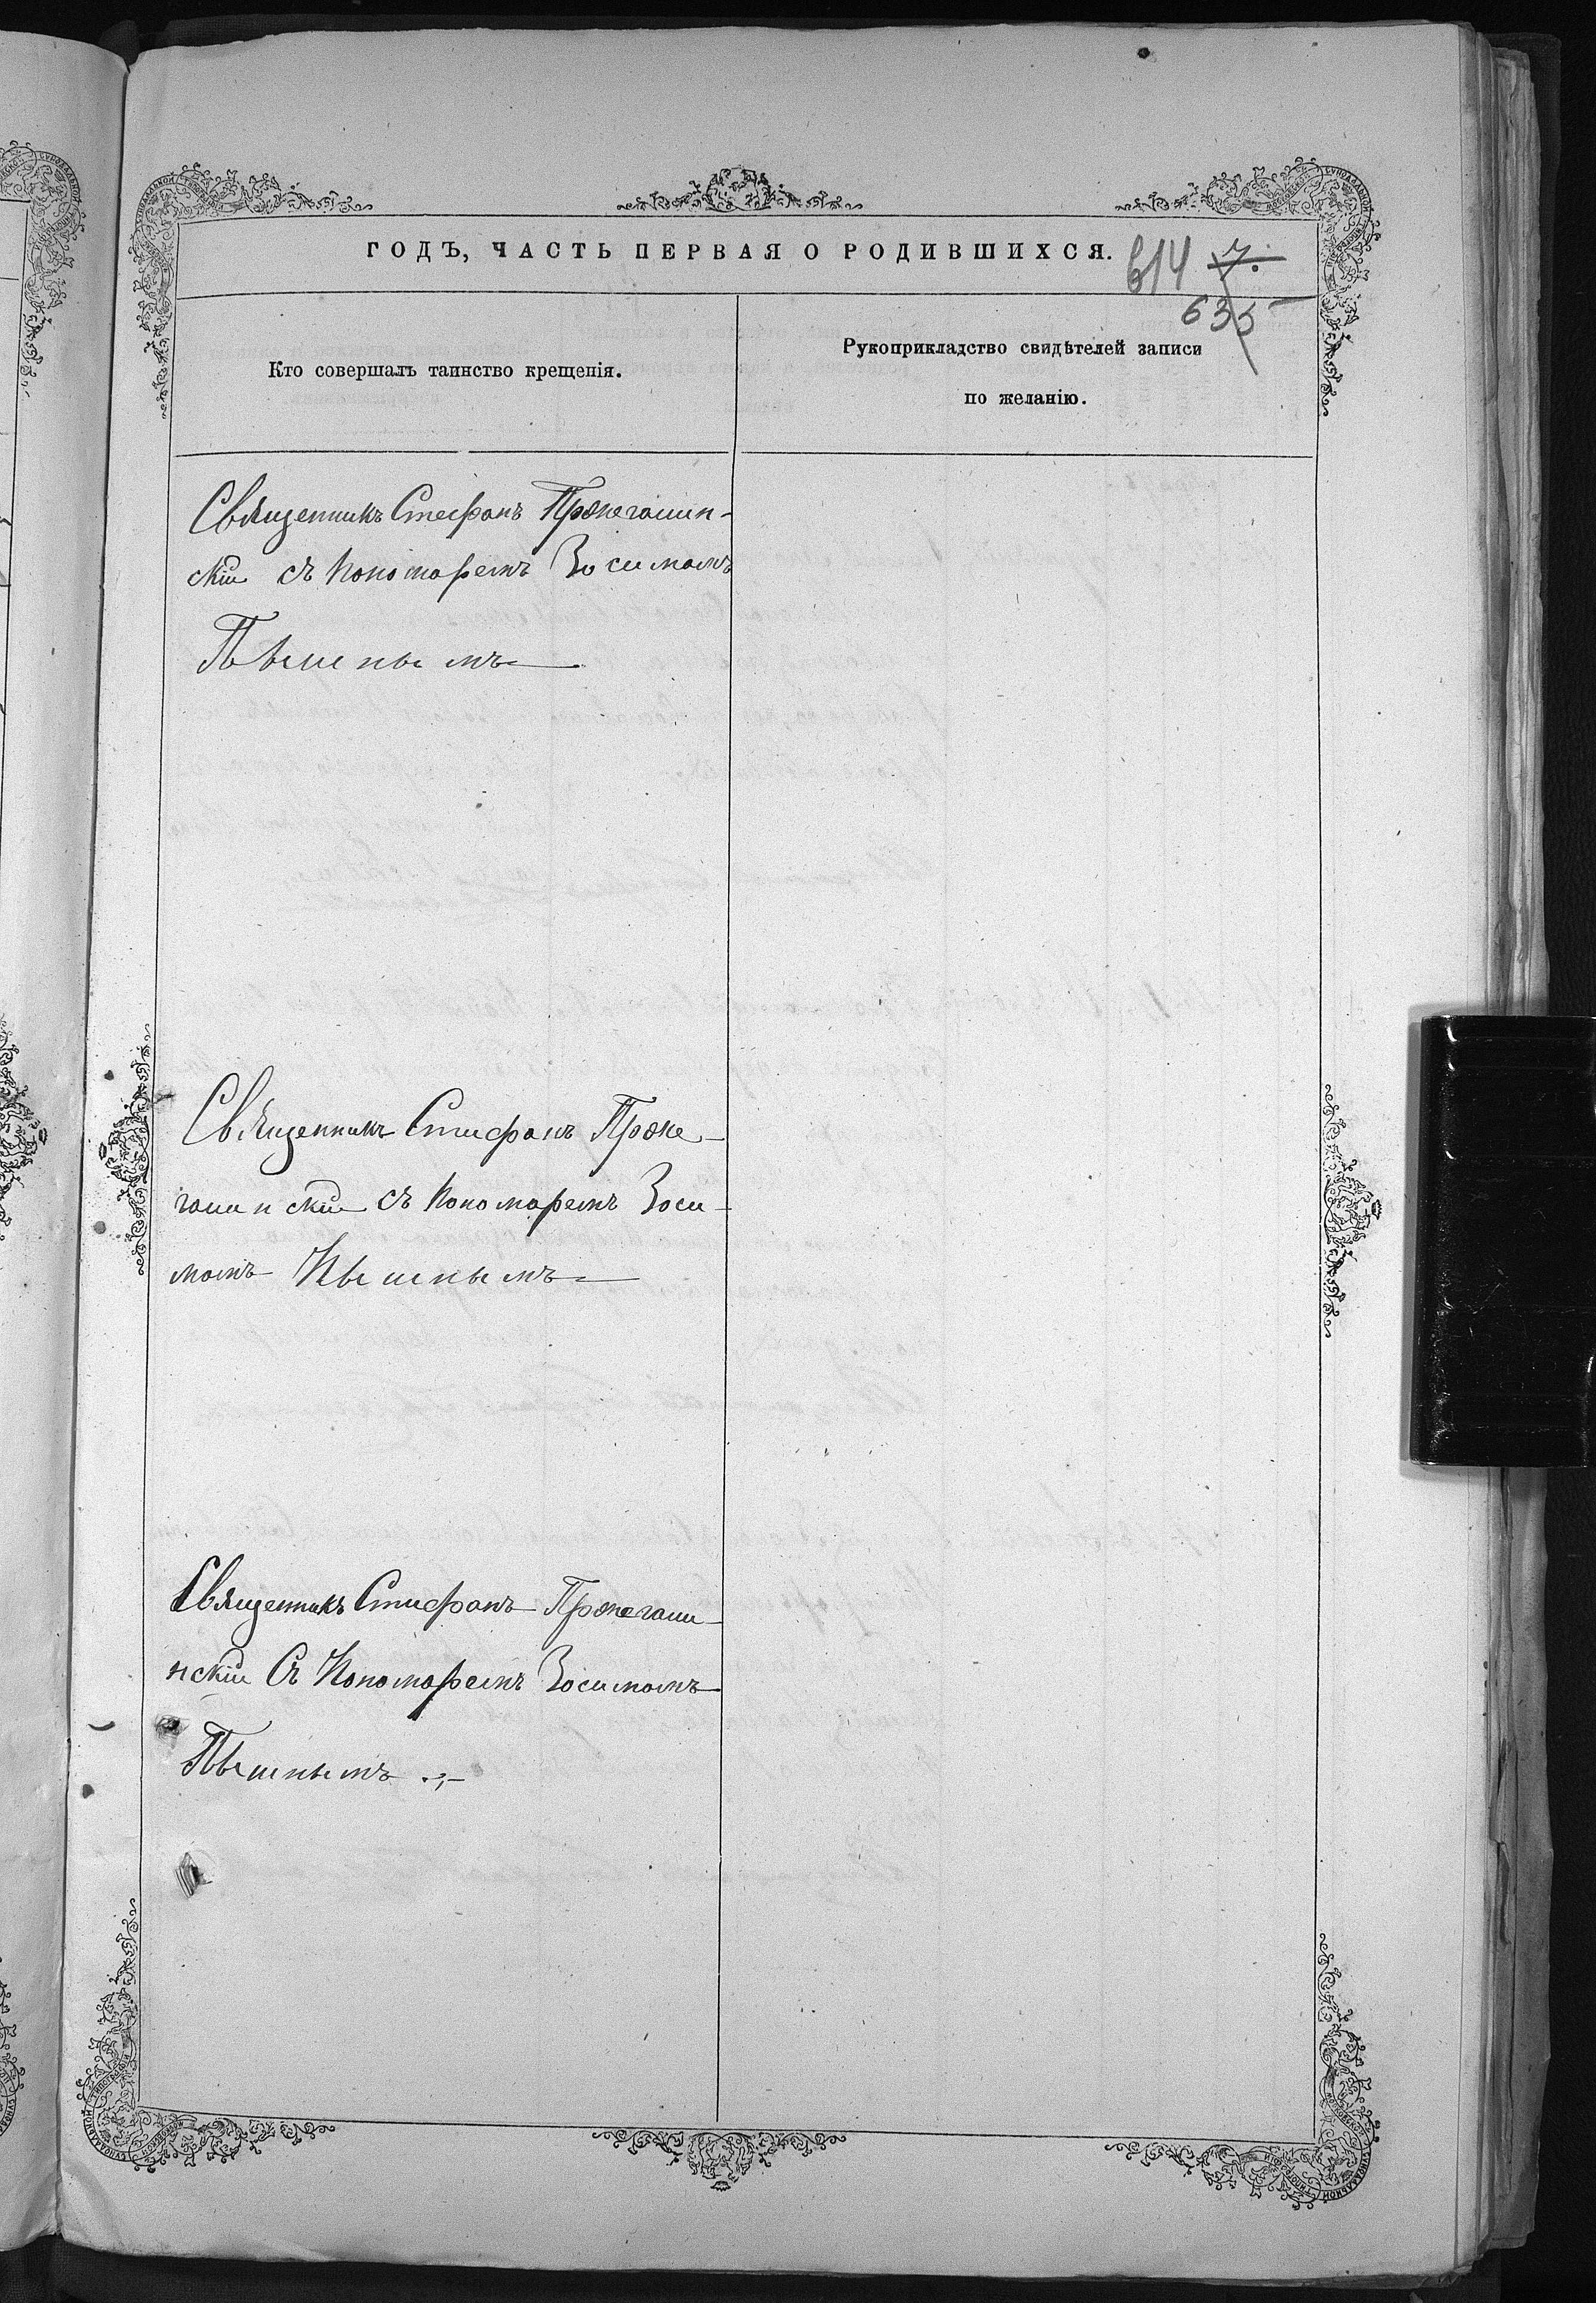 ГОДЪ, ЧАСТЬ ПЕРВАЯ О РОДИВШИХСЯ.
614 7.
635
Кто совершалъ таинство крещенія.
Рукоприкладство свидѣтелей записи
по желанію.
Священникъ Стефанъ
скій съ Пономаремъ Зосимомъ
Пышнымъ
Священникъ Стефанъ
съ Пономаремъ Зоси-
момъ Пышнымъ
Священникъ Стефанъ
нскій съ Пономаремъ Зосимомъ
Пышнымъ